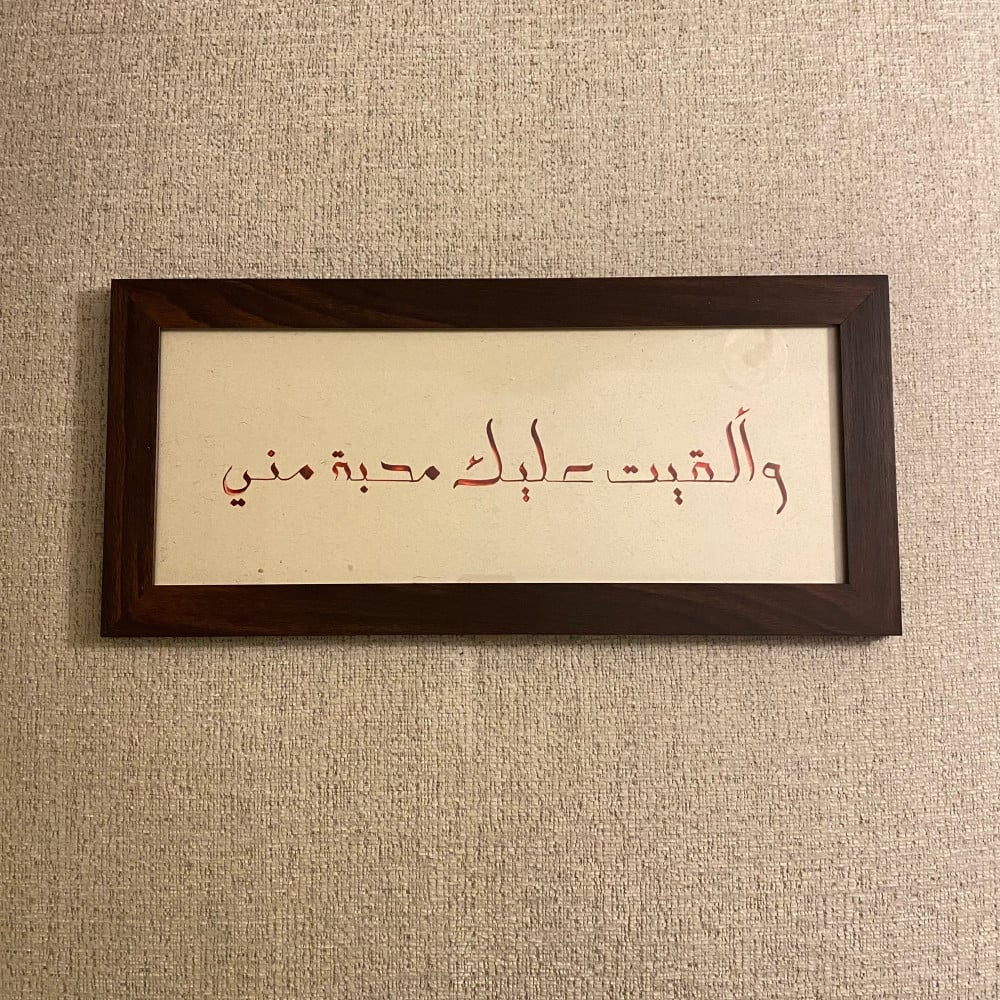 وألقيت عليك محبة مني